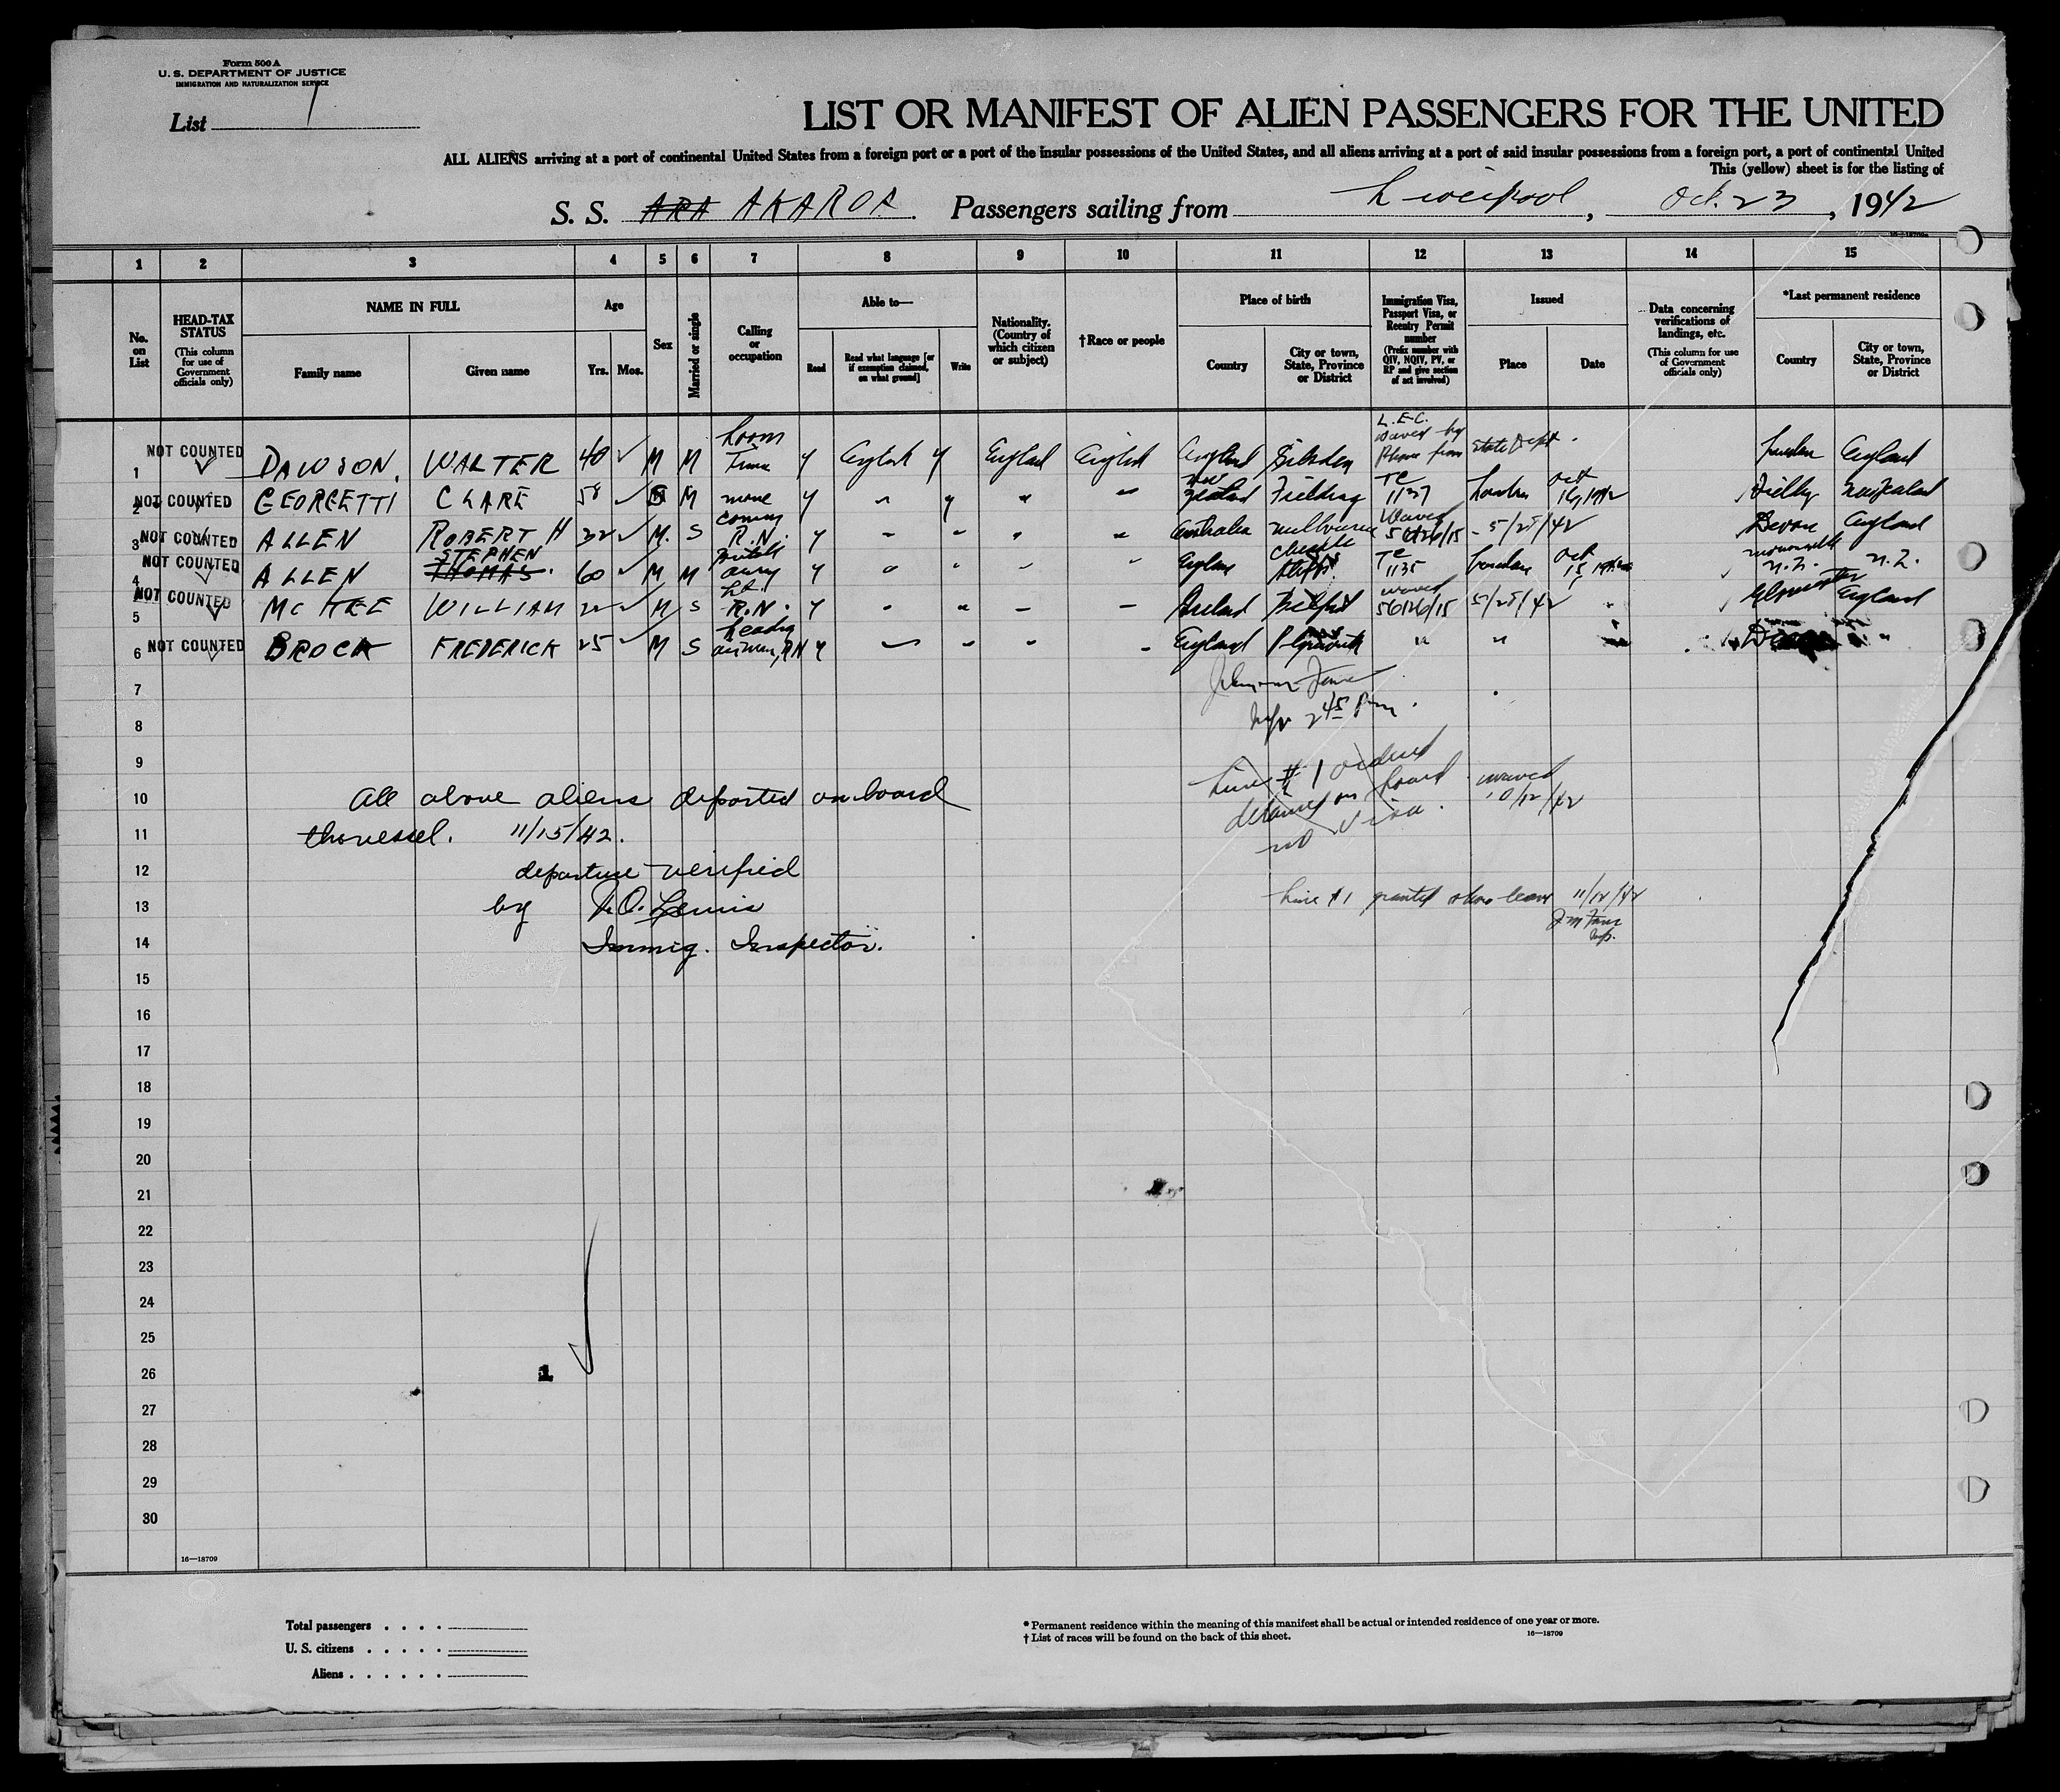 Form 500 A
U. S. DEPARTMENT OF JUSTICE
IMMIGRATION AND NATURALIZATION SERVICE
List 1
LIST OR MANIFEST OF ALIEN PASSENGERS FOR THE UNITED
ALL ALIENS arriving at a port of continental United States from a foreign port or a port of the insular possessions of the United States, and all aliens arriving at a port of said insular possessions from a foreign port, a port of continental United
This (yellow) sheet is for the listing of
S. S. ARA AKAROA. Passengers sailing from Liverpool, Oct. 23, 1942
16—18709
1 2 3 4 5 6 7 8 9 10 11 12 13 14 15
No. on List
HEAD-TAX STATUS
(This column for use of Government officials only)
NAME IN FULL
Family name Given name
Age
Yrs. Mos.
Sex
Married or single
Calling or occupation
Able to—
Read Read what language [or if exemption claimed, on what ground] Write
Nationality. (Country of which citizen or subject)
†Race or people
Place of birth
Country City or town, State, Province or District
Immigration Visa, Passport Visa, or Reentry Permit number
(Prefix number with QIV, NQIV, PV, or RP and give section of act involved)
Issued
Place Date
Data concerning verifications of landings, etc.
(This column for use of Government officials only)
*Last permanent residence
Country City or town, State, Province or District
1 NOT COUNTED DAWSON, WALTER 40 M M y English y England English England Silsden L.E.C. waved by Phone from State Dept. England
2 NOT COUNTED GEORGETTI CLARE 58 M none y " y " " New Zealand Fielding TE 1137 London Oct 16, 1942 New Zealand
3 NOT COUNTED ALLEN ROBERT H 22 M. S R.N. y " " " " Australia Melbourne Waved 56126/15 - 5/25/42 Devon England
4 NOT COUNTED ALLEN STEPHEN THOMAS. 60 M M y " " " " England TE 1135 London Oct 15, N.Z. N.Z.
5 NOT COUNTED MCKEE WILLIAM 22 M S Lt. R.N. y " " — — Ireland Belfast waved 56126/15 5/25/42 " England
6 NOT COUNTED BROCK FREDERICK 25 M S Leading airman, RN y " " " " England Plymouth " " "
7
8 245 Pm.
9 Line #1 ordered
10 All above aliens departed on board detained on board waved 10/12/42
11 this vessel. 11/15/42. no visa.
12 departure verified
13 by Lewis Line #1 granted shore leave 11/12/42
14 Immig. Inspector. Insp.
15
16
17
18
19
20
21
22
23
24
25
26 1
27
28
29
30
16—18709
Total passengers . . . .
U. S. citizens . . . . .
Aliens . . . . . .
* Permanent residence within the meaning of this manifest shall be actual or intended residence of one year or more.
† List of races will be found on the back of this sheet. 16—18709